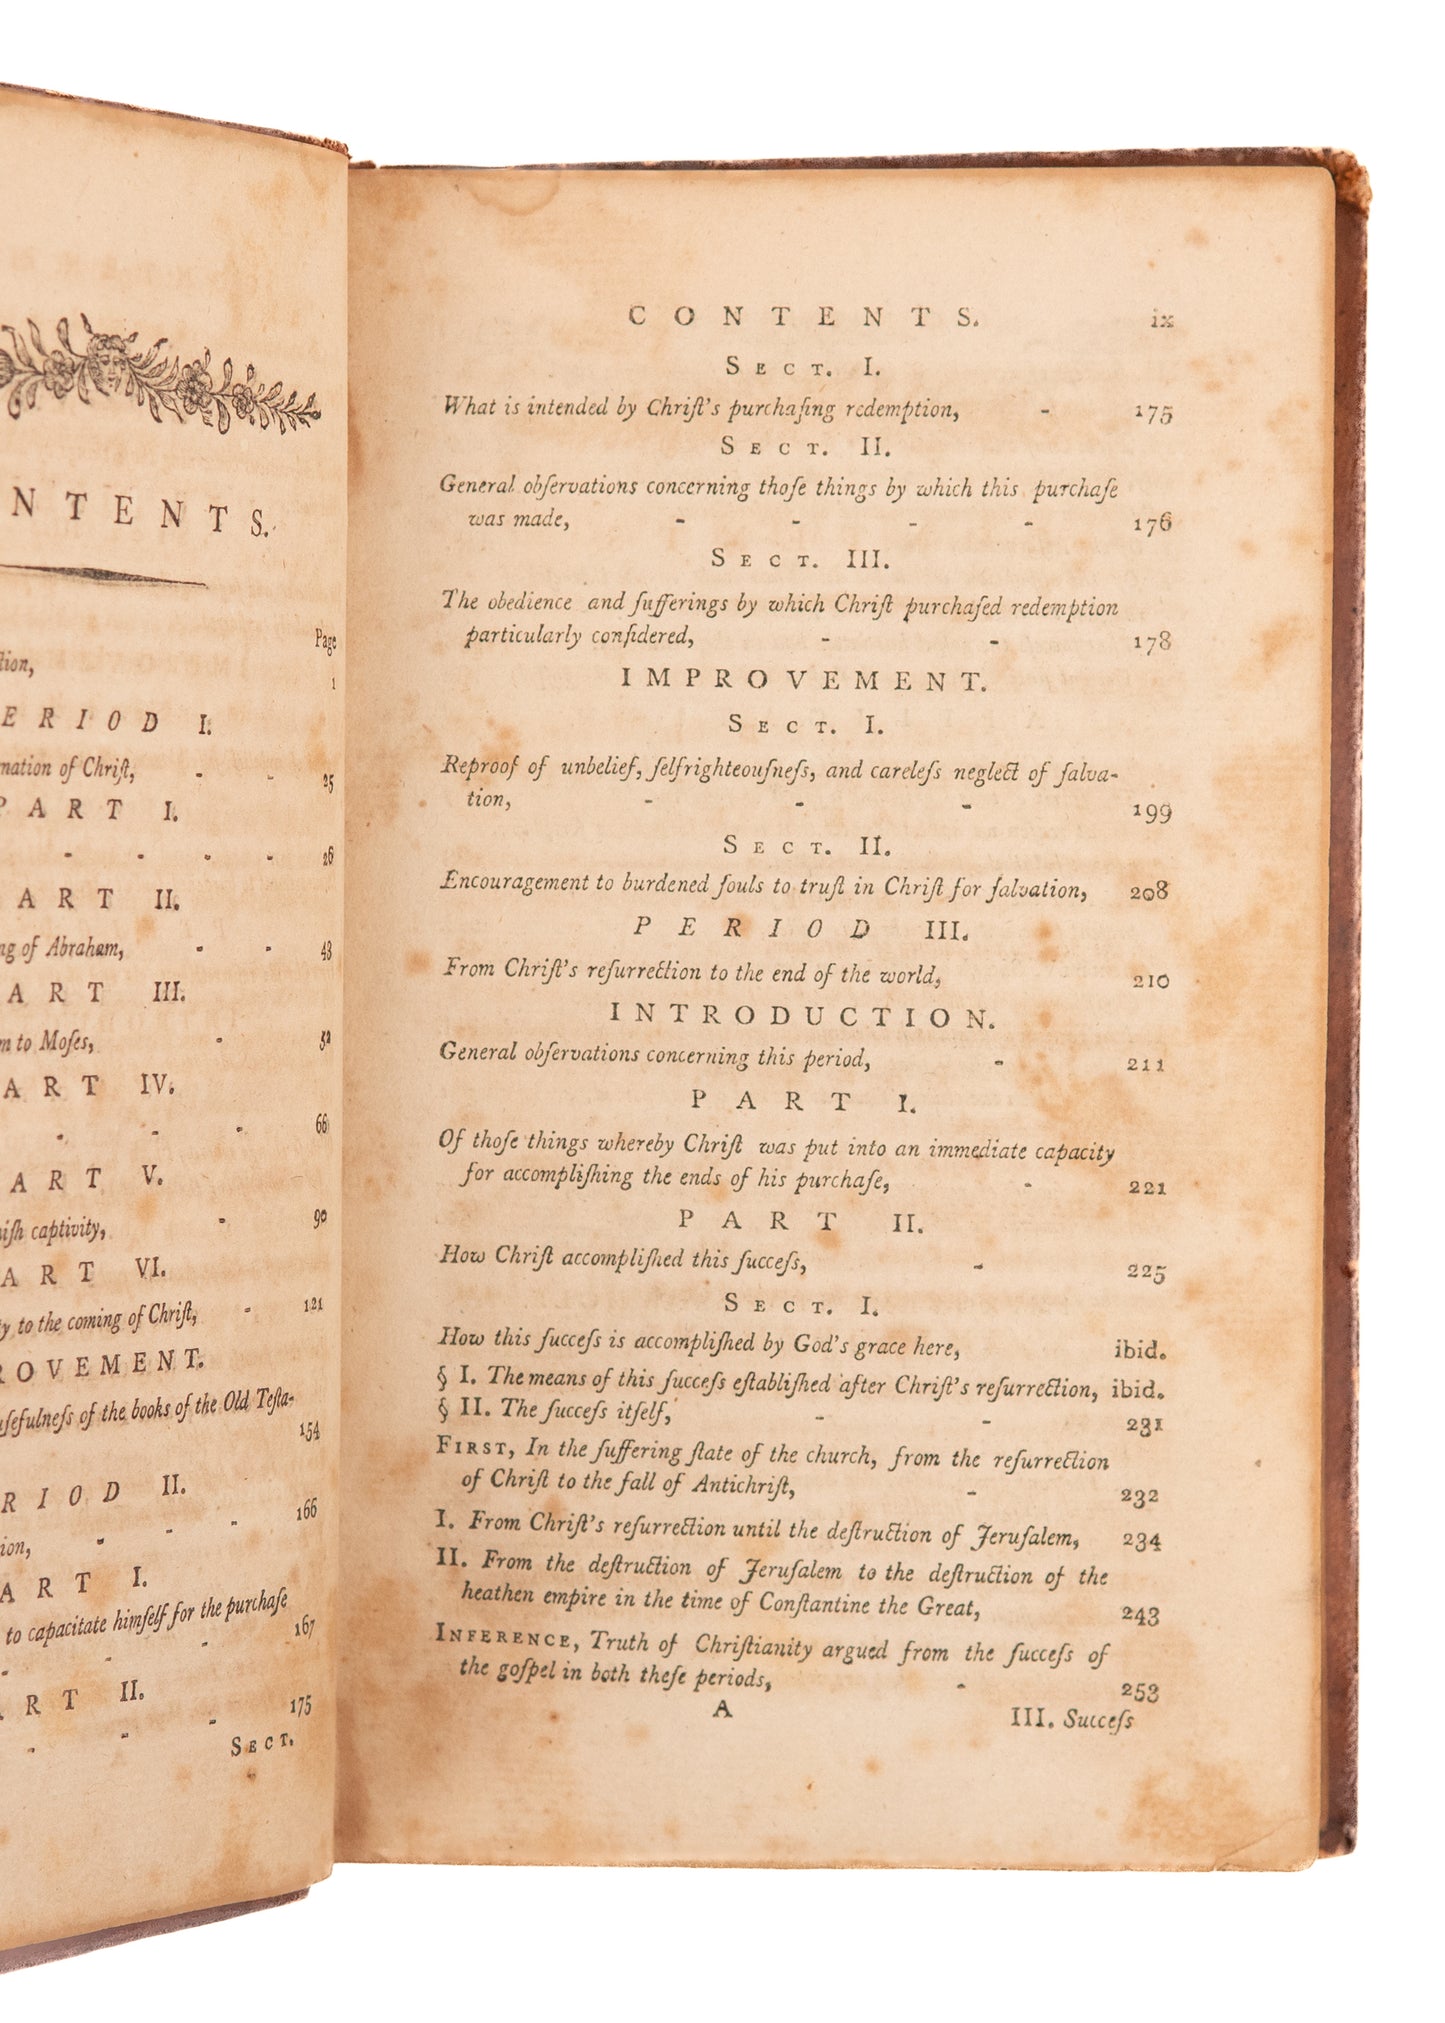 NTENTS.
Page
ƈtion,
1
ERIOD I.
nation of Chriſt, - - 25
PART I.
- - - - 26
ART II.
ng of Abraham, - - 43
ART III.
m to Moſes, - 52
ART IV.
- - - 66
ART V.
niſh captivity, - 90
ART VI.
ty to the coming of Chriſt, - 121
ROVEMENT.
uſefulneſs of the books of the Old Teſta-
154
RIOD II.
ion, - - - 166
ART I.
to capacitate himſelf for the purchaſe
- - - 167
ART II.
- - - 175
SECT.
CONTENTS. ix
SECT. I.
What is intended by Chriſt's purchaſing redemption, - 175
SECT. II.
General obſervations concerning thoſe things by which this purchaſe
was made, - - - - 176
SECT. III.
The obedience and ſufferings by which Chriſt purchaſed redemption
particularly conſidered, - - 178
IMPROVEMENT.
SECT. I.
Reproof of unbelief, ſelfrighteouſneſs, and careleſs neglect of ſalva-
tion, - - - 199
SECT. II.
Encouragement to burdened ſouls to truſt in Chriſt for ſalvation, 208
PERIOD III.
From Chriſt's reſurrection to the end of the world, 210
INTRODUCTION.
General obſervations concerning this period, - 211
PART I.
Of thoſe things whereby Chriſt was put into an immediate capacity
for accompliſhing the ends of his purchaſe, - 221
PART II.
How Chriſt accompliſhed this ſucceſs, - 225
SECT. I.
How this ſucceſs is accompliſhed by God's grace here, ibid.
§ I. The means of this ſucceſs eſtabliſhed after Chriſt's reſurrection, ibid.
§ II. The ſucceſs itſelf, - - 231
FIRST, In the ſuffering ſtate of the church, from the reſurrection
of Chriſt to the fall of Antichriſt, - 232
I. From Chriſt's reſurrection until the deſtruction of Jeruſalem, 234
II. From the deſtruction of Jeruſalem to the deſtruction of the
heathen empire in the time of Conſtantine the Great, 243
INFERENCE, Truth of Chriſtianity argued from the ſucceſs of
the goſpel in both theſe periods, - 253
A III. Succeſs